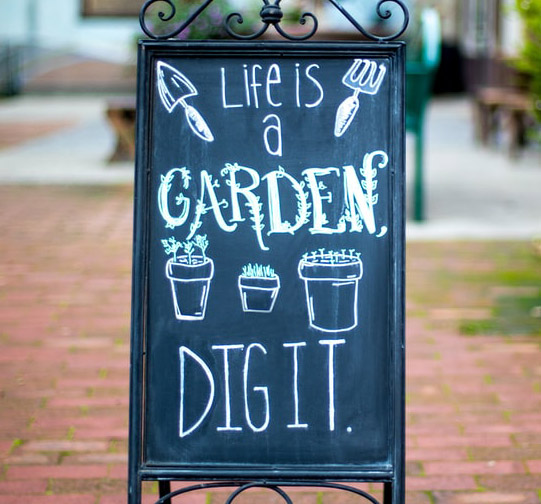 LiFe iS
a
GARDEN,
DIG IT.